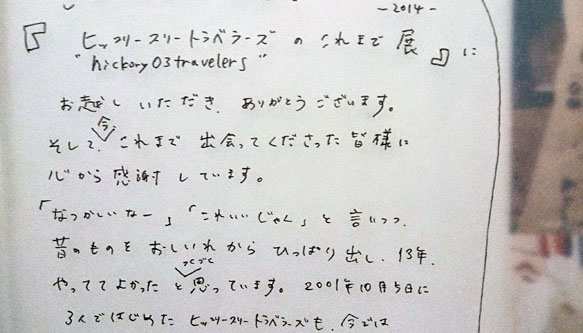 -2014-
『ヒッコリースリートラベラーズ のこれまで展』に
"hickory03travelers"
お越しいただき、ありがとうございます。
今、
そして、これまで 出会ってくださった皆様に
心から感謝しています。
「なつかしいなー」「これいいじゃん」と言いつつ、
昔のものをおしいれからひっぱり出し、13年、
つくづく
やっててよかったと思っています。2001年10月5日に
3人ではじめたヒッコリースリートラベラーズも、今では